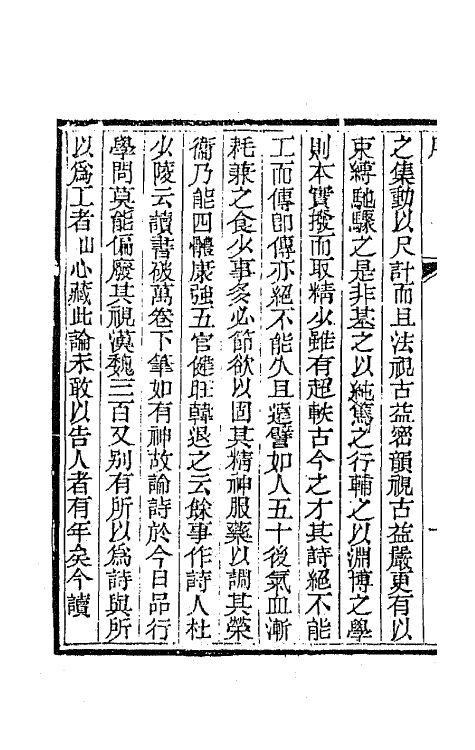 之集動以尺計而且法視古益密韻視古益嚴更有以
束縛馳驟之是非基之以純篤之行輔之以淵博之學
則本實撥而取精少雖有超軼古今之才其詩絕不能
工而傳卽傳亦絕不能久且遠譬如人五十後氣血漸
耗兼之食少事多必節欲以固其精神服藥以調其榮
衞乃能四體康強五官健旺韓退之云餘事作詩人杜
少陵云讀書破萬卷下筆如有神故論詩於今日品行
學問莫能偏廢其視漢魏三百又別有所以爲詩與所
以爲工者山心藏此論未敢以告人者有年矣今讀